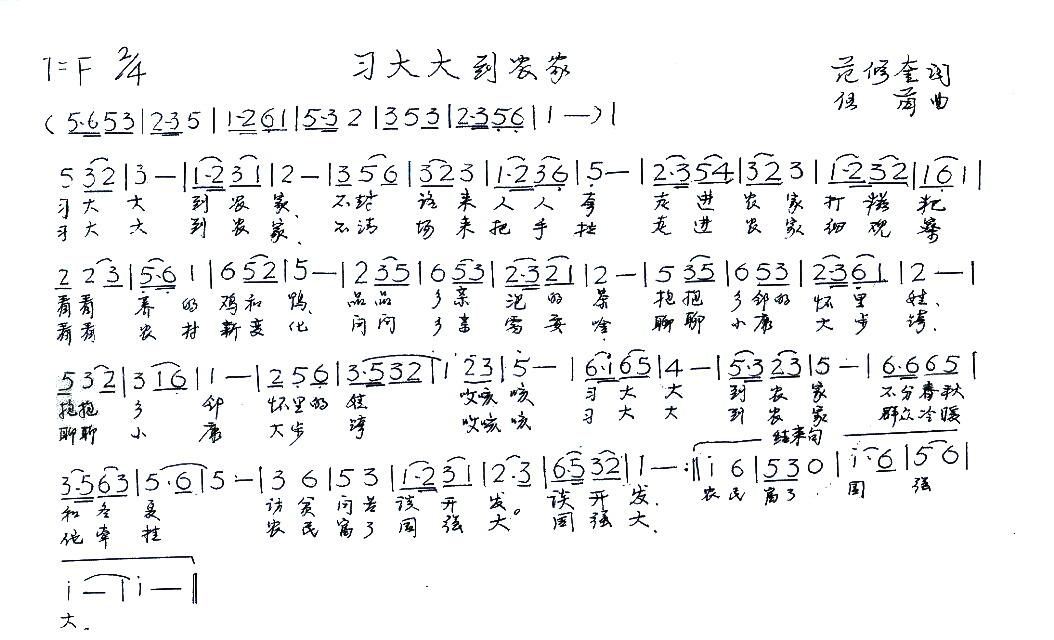 1=F 2/4 习大大到农家 范修奎词
曲
(5·653|2·35|1·261|5·32|353|2·356|1—)|
5 32|3—|1·231|2—|356|323|1·236|5·—|2·354|323|1·232|161|
习大大到农家、不封路来人人夸 走进农家打糍粑
习大大到农家、不清场来把手拉 走进农家细观察
2 23|5·61|652|5—|235|653|2·321|2—|535|653|2·361|2—|
看看养的鸡和鸭 品品乡亲泡的茶 抱抱乡邻的怀里娃、
看看农村新变化 问问乡亲需要啥 聊聊小康大步跨、
532|316|1—|256|3·532|1 23|5—|6·165|4—|5·323|5—|6·665|
抱抱乡邻怀里的娃 哎咳咳 习大大到农家 不分春秋
聊聊小康大步跨 哎咳咳 习大大到农家 群众冷暖
结束句
3·563|5·6|5—|36|53|1·231|2·3|65 32|1—:‖i 6|530|i·6|56|
和冬夏 访贫问苦谈开发。谈开发、 农民富了国强
他牵挂 农民富了国强大。国强大、
i—|i—‖
大。